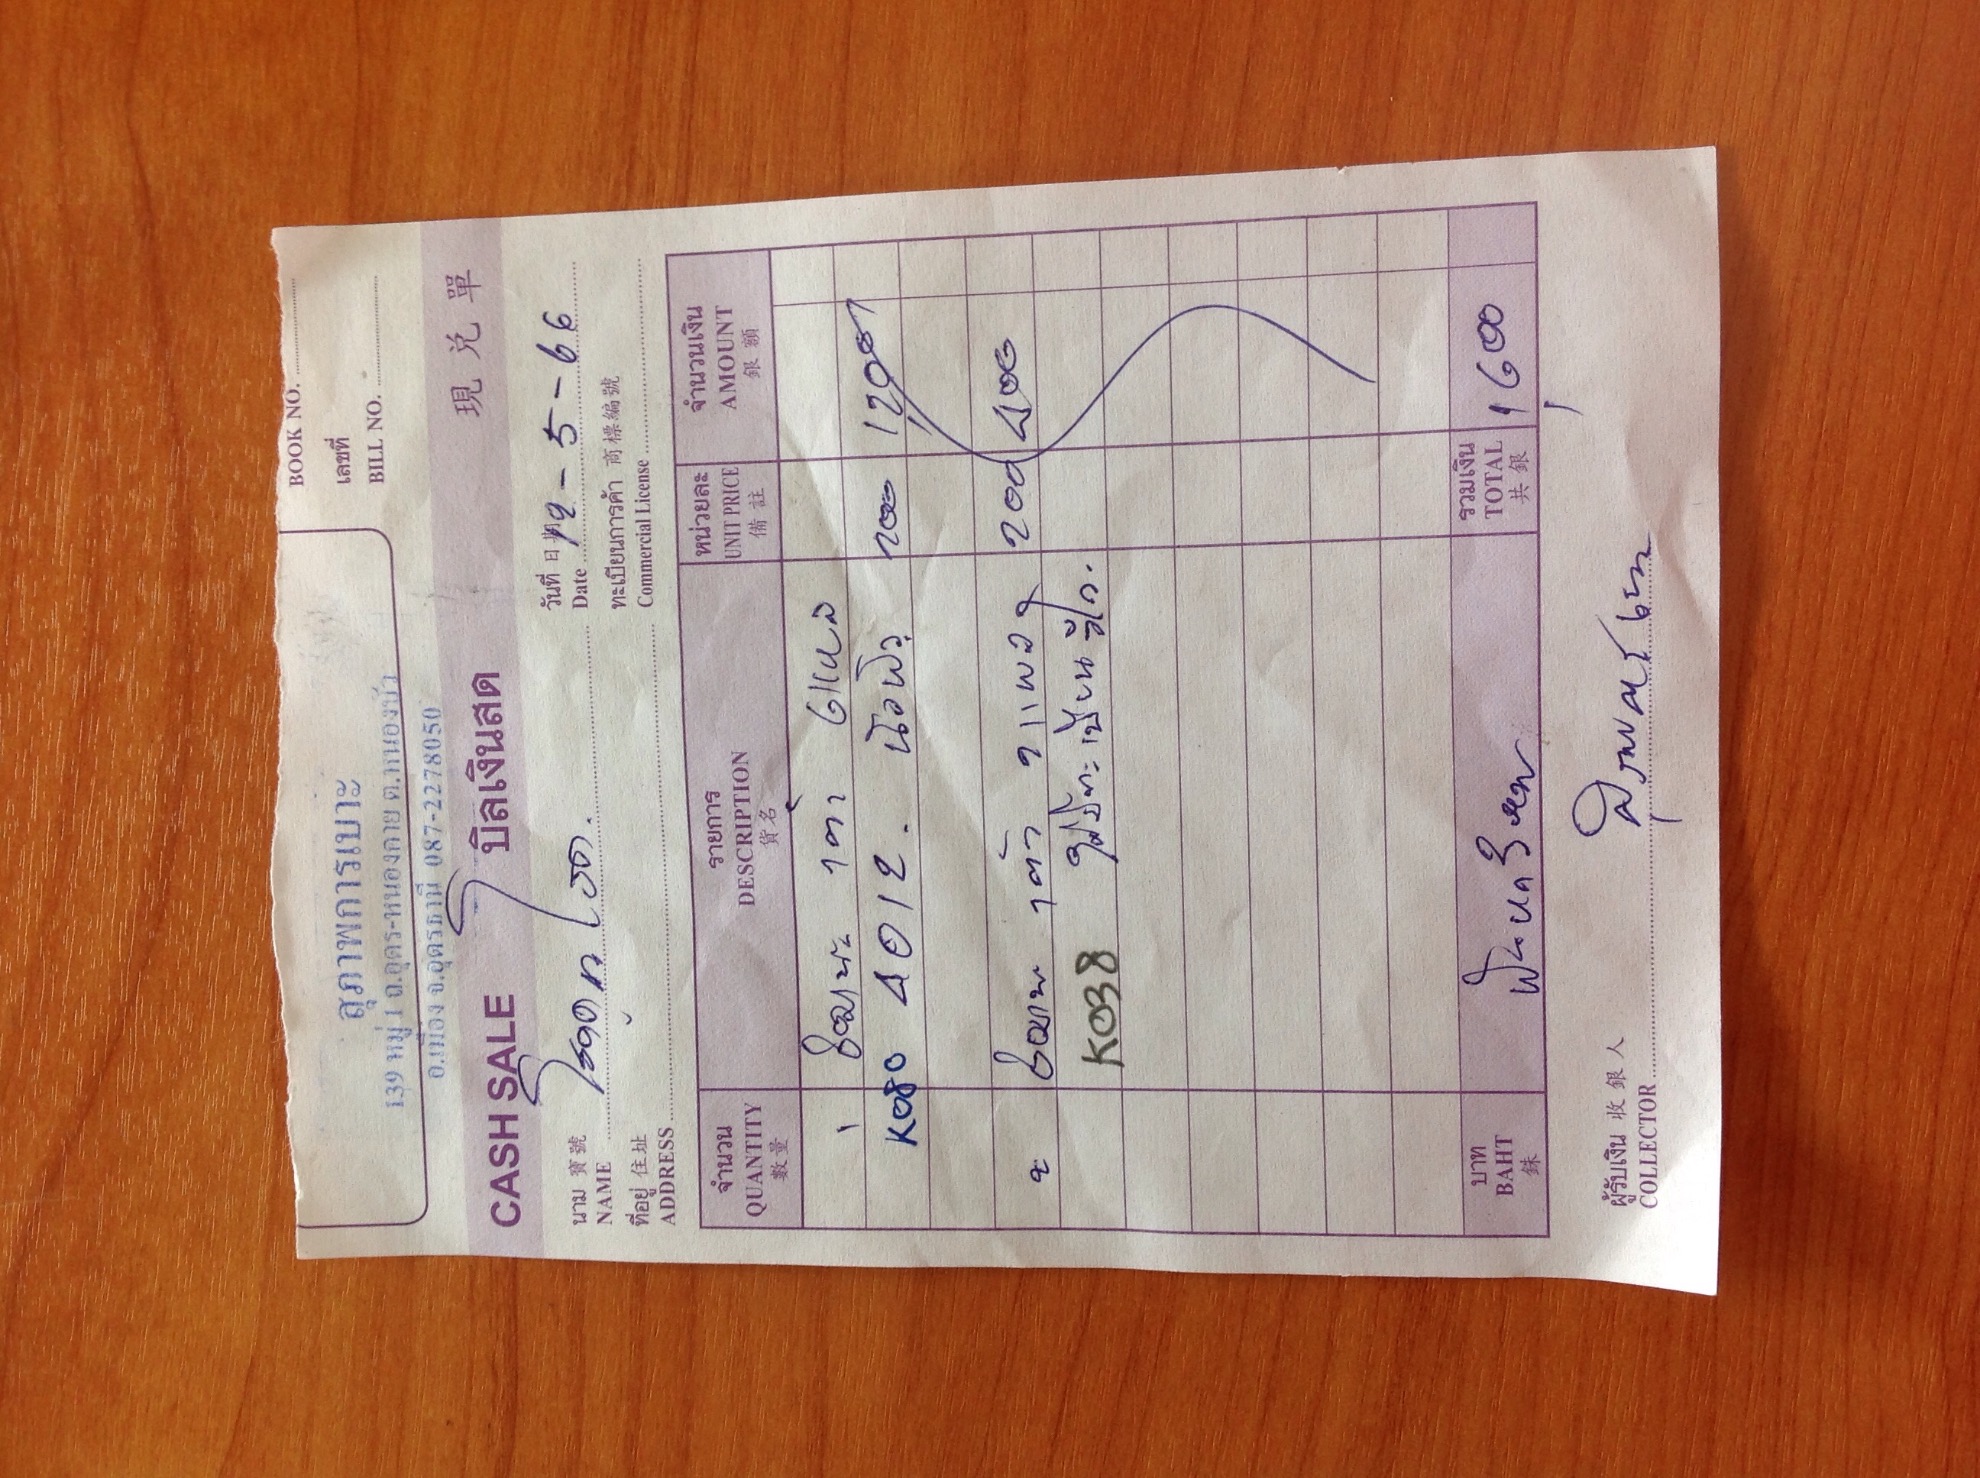 BOOK NO.
เลขที่
BILL NO.
สุภาพการเบาะ
139 หมู่ 1 ถ.อุดร-หนองคาย ต.หมากแข้ง
อ.เมือง จ.อุดรธานี 087-2278050
CASH SALE บิลเงินสด 現兌單
นาม 寶號 วันที่ 日期
NAME Date 12-5-66
ที่อยู่ 住址 ทะเบียนการค้า 商標編號
ADDRESS Commercial License
จำนวน รายการ หน่วยละ จำนวนเงิน
QUANTITY DESCRIPTION UNIT PRICE AMOUNT
數量 貨名 備註 銀額
1 ซ่อมเบาะ เก่า 6 แผง
K080 4012. 200 1200
2 ซ่อม เก่า 2 แผง 200 400
K038
บาท รวมเงิน
BAHT TOTAL 1,600
銖 共銀
ผู้รับเงิน 收銀人
COLLECTOR